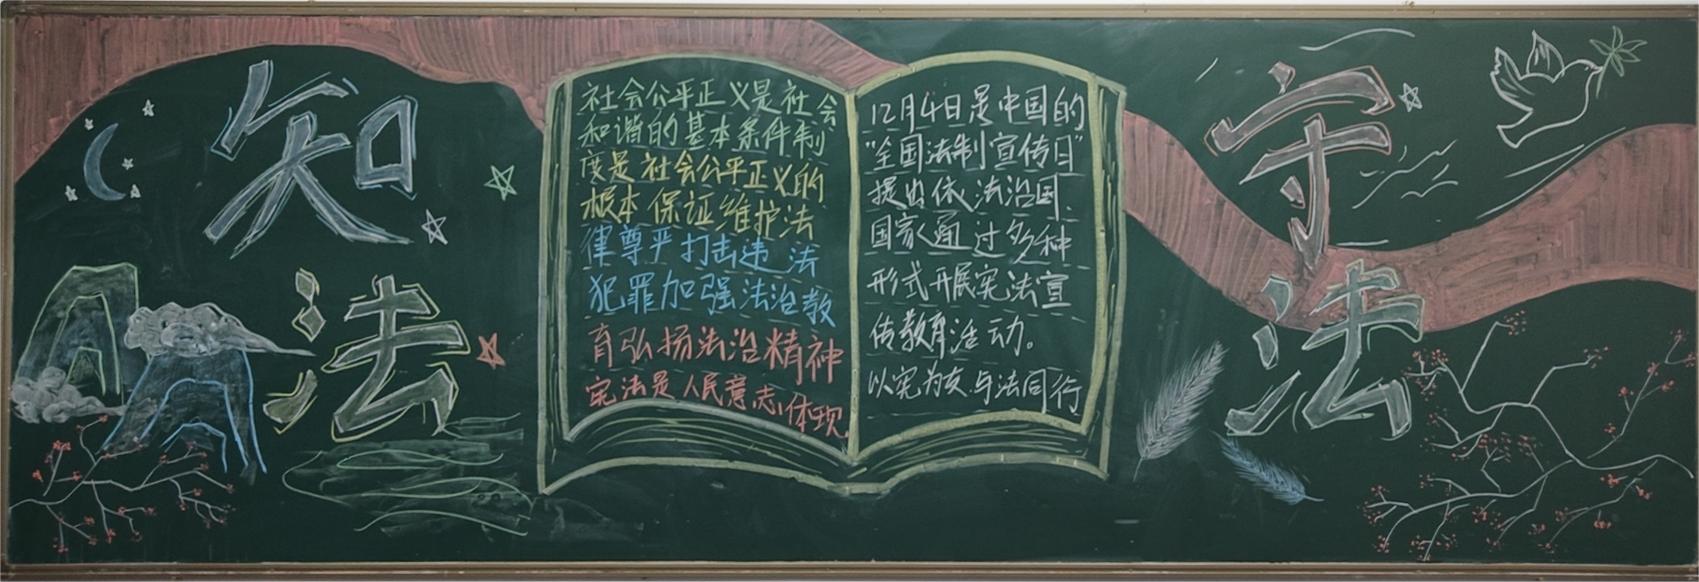 知
法
社会公平正义是社会
和谐的基本条件制
度是社会公平正义的
根本保证维护法
律尊严打击违法
犯罪加强法治教
育弘扬法治精神
宪法是人民意志体现
12月4日是中国的
"全国法制宣传日"
提出依法治国.
国家通过多种
形式开展宪法宣
传教育活动。
以宪为友与法同行
守
法